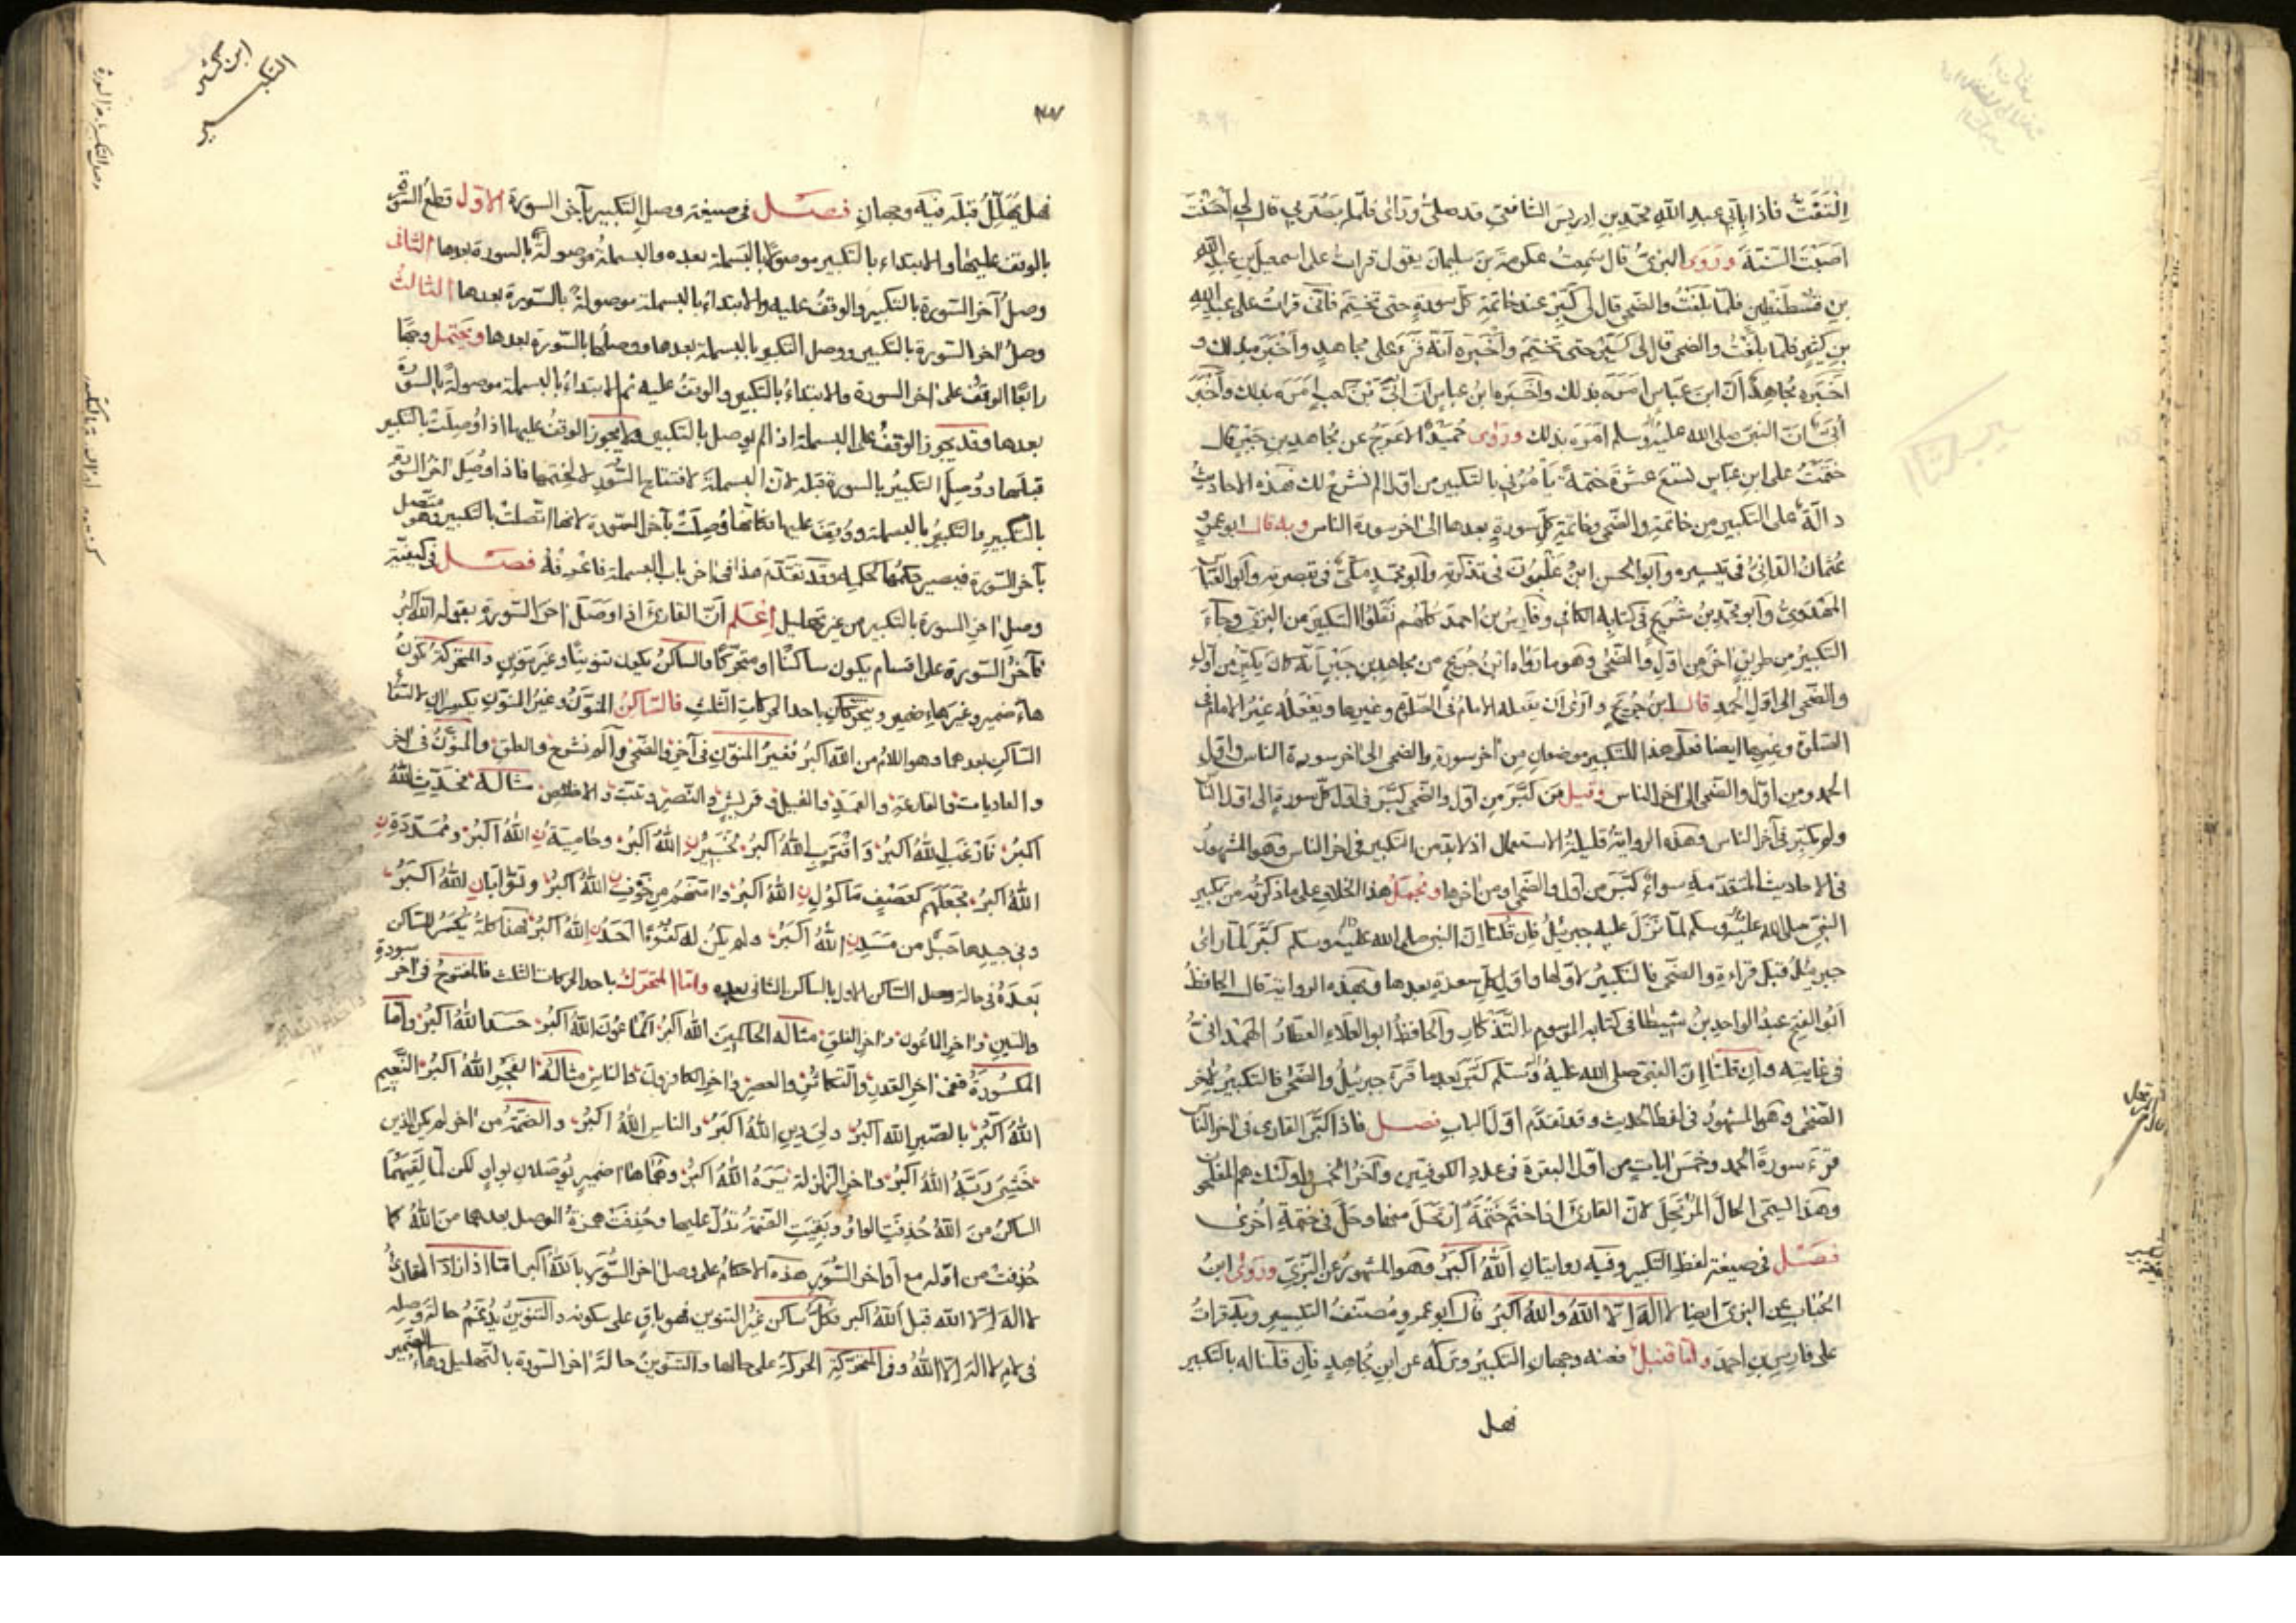 التفتُّ فاذا بابي عبد الله محمد بن ادريس الشافعي قد صلى ورائي فلما بصر بي قال لي احسنت
اصبت السنة وروى البزي قال سمعت عكرمة بن سليمان يقول قرات على اسمعيل بن عبد الله
بن قسطنطين فلما بلغت والضحى قال لي كبر عند خاتمة كل سورة حتى تختم فاني قرات على عبد الله
بن كثير فلما بلغت والضحى قال لي كبر حتى تختم واخبره انه قرء على مجاهد واخبره بذلك و
اخبره مجاهد ان ابن عباس امره بذلك واخبره ابن عباس ان ابي بن كعب امره بذلك واخبره
ابي ان النبي صلى الله عليه وسلم امره بذلك وروى حميد الاعرج عن مجاهد بن جبر قال
ختمت على ابن عباس تسع عشرة ختمة يامرني بالتكبير من اول الم نشرح لك فهذه الاحاديث
دالة على التكبير من خاتمة والضحى وخاتمة كل سورة بعدها الى اخر سورة الناس وبه قال ابو عمرو
عثمان الداني في تيسيره وابو الحسن ابن غلبون في تذكرته وابو محمد مكي في تبصرته وابو العباس
المهدوي وابو محمد بن شريح في كتابه الكافي وفارس بن احمد كلهم نقلوا التكبير من البزي وجاء
التكبير من طريق اخر من اول والضحى وهو ما رواه ابن جريج من مجاهد بن جبر انه كان يكبر من اول
والضحى الى اول الحمد قال ابن جريج وارى ان يفعله الامام في الصلوة وغيرها ويفعله غير الامام في
الصلوة وغيرها ايضا فعلى هذا للتكبير موضعان من اخر سورة والضحى الى اخر سورة الناس واول
الحمد ومن اول والضحى الى اخر الناس وقيل من كبر من اول والضحى كبر في اول كل سورة الى اول الناس
ولم يكبر في آخر الناس وهذه الرواية قليلة الاستعمال اذ لا بد من التكبير في اخر الناس وهو المشهور
في الاحاديث المتقدمة سواء كبر من اول والضحى او من اخرها ويحمل هذا الخلاف على ما ذكرته من تكبير
النبي صلى الله عليه وسلم لما نزل عليه جبرئيل فان قلنا ان النبي صلى الله عليه وسلم كبر لما راى
جبرئيل قبل قراءة والضحى فالتكبير لاولها واول كل سورة بعدها وبهذه الرواية قال الحافظ
ابو الفتح عبد الواحد بن شيطا في كتابه الموسوم بالتذكار والحافظ ابو العلاء العطار الهمداني
في غايته وان قلنا ان النبي صلى الله عليه وسلم كبر بعد ما قرء جبرئيل والضحى فالتكبير لاخر
الضحى وهو المشهور في لفظ الحديث وقد تقدم اول الباب فصل فاذا كبر القارئ في اخر الناس
قرء سورة الحمد وخمس ايات من اول البقرة في عدد الكوفيين وآخر الخمس واولئك هم المفلحون
وهذا ليسمى الحال المرتحل لان القارئ اذا ختم ختمة ارتحل منها وحل في ختمة اخرى
فصل في صيغة لفظ التكبير وفيه روايتان الله اكبر وهو المشهور عن البزي وروى ابن
الحباب عن البزي ايضا لا اله الا الله والله اكبر قال ابو عمرو مصنف التيسير وبه قرات
على فارس بن احمد واما قنبل فعنه وجهان التكبير وتركه عن ابن مجاهد فان قلنا له بالتكبير
فهل
فهل يهلل قبله فيه وجهان فصل في صيغة وصل التكبير بآخر السورة الاول قطع السورة
بالوقف عليها والابتداء بالتكبير موصولا بالبسملة بعده والبسملة موصولة بالسورة بعدها الثاني
وصل آخر السورة بالتكبير والوقف عليه والابتداء بالبسملة موصولة بالسورة بعدها الثالث
وصل اخر السورة بالتكبير ووصل التكبير بالبسملة بعدها ووصلها بالسورة بعدها ويحتمل وجها
رابعا الوقف على اخر السورة والابتداء بالتكبير والوقف عليه ثم الابتداء بالبسملة موصولة بالسورة
بعدها وقد يجوز الوقف على البسملة اذا لم يوصل بالتكبير ولا يجوز الوقف عليها اذا وصلت بالتكبير
قبلها ووصل التكبير بالسورة قبله لان البسملة لافتتاح السور لا لختمها فاذا وصل اخر السورة
بالتكبير والتكبير بالبسملة ووقف عليها فكانها وصلت بآخر السورة لانها اتصلت بالتكبير وهو متصل
بآخر السورة فيصير حكمها كحكمه وقد تقدم هذا في اخر باب البسملة فاعرفه فصل في كيفية
وصل اخر السورة بالتكبير من غير تهليل اعلم ان القارئ اذا وصل اخر السورة بقوله الله اكبر
فآخر السورة على اقسام يكون ساكنا او متحركا والساكن يكون تنوينا وغير تنوين والمتحركة يكون
هاء ضمير وغير هاء ضمير ويتحركان باحد الحركات الثلث فالساكن المنون وغير المنون يكسران لالتقاء
الساكن بعدهما وهو اللام من الله اكبر فغير المنون في آخر والضحى والم نشرح والعلق والمنون في اخر
والعاديات والقارعة والهمزة والفيل وقريش والنصر وتبت والاخلاص مثاله فحدث الله
اكبر فارغب الله اكبر واقترب الله اكبر لخبير الله اكبر وحامية الله اكبر وممددة
الله اكبر فجعلهم كعصف ماكول الله اكبر وامنهم من خوف الله اكبر وتوابا الله اكبر
وفي جيدها حبل من مسد الله اكبر ولم يكن له كفوا احد الله اكبر فهذا كله يكسر الساكن
بعده في حالة وصل الساكن الاول بالساكن الثاني بعده واما المتحرك باحد الحركات الثلث فالمفتوح في اخر سورة
والتين واخر الماعون واخر الفلق مثاله الحاكمين الله اكبر الماعون الله اكبر حسد الله اكبر واما
المكسورة ففي اخر القدر والتكاثر والعصر واخر الكافرون والناس مثاله الفجر الله اكبر النعيم
الله اكبر بالصبر الله اكبر ولي دين الله اكبر والناس الله اكبر والضمة من اخر لم يكن الذين
خشي ربه الله اكبر واخر الزلزلة يره الله اكبر وهما هاءا ضمير يوصلان بواو لكن لما لقيهما
الساكن من الله حذفت الواو وبقيت الضمة تدل عليها وحذفت همزة الوصل بعدهما من الله كما
حذفت من اوله مع أواخر السور هذه الاحكام على وصل اخر السور بالله اكبر اما اذا اراد القارئ
لا اله الا الله قبل الله اكبر فكل ساكن غير التنوين فهو باق على سكونه والتنوين يدغم حالة وصله
في لام لا اله الا الله وفي المتحركة الحركة على حالها والتنوين حالة اخر السورة بالتهليل وهاء الضمير
ابن كثير
التكبير